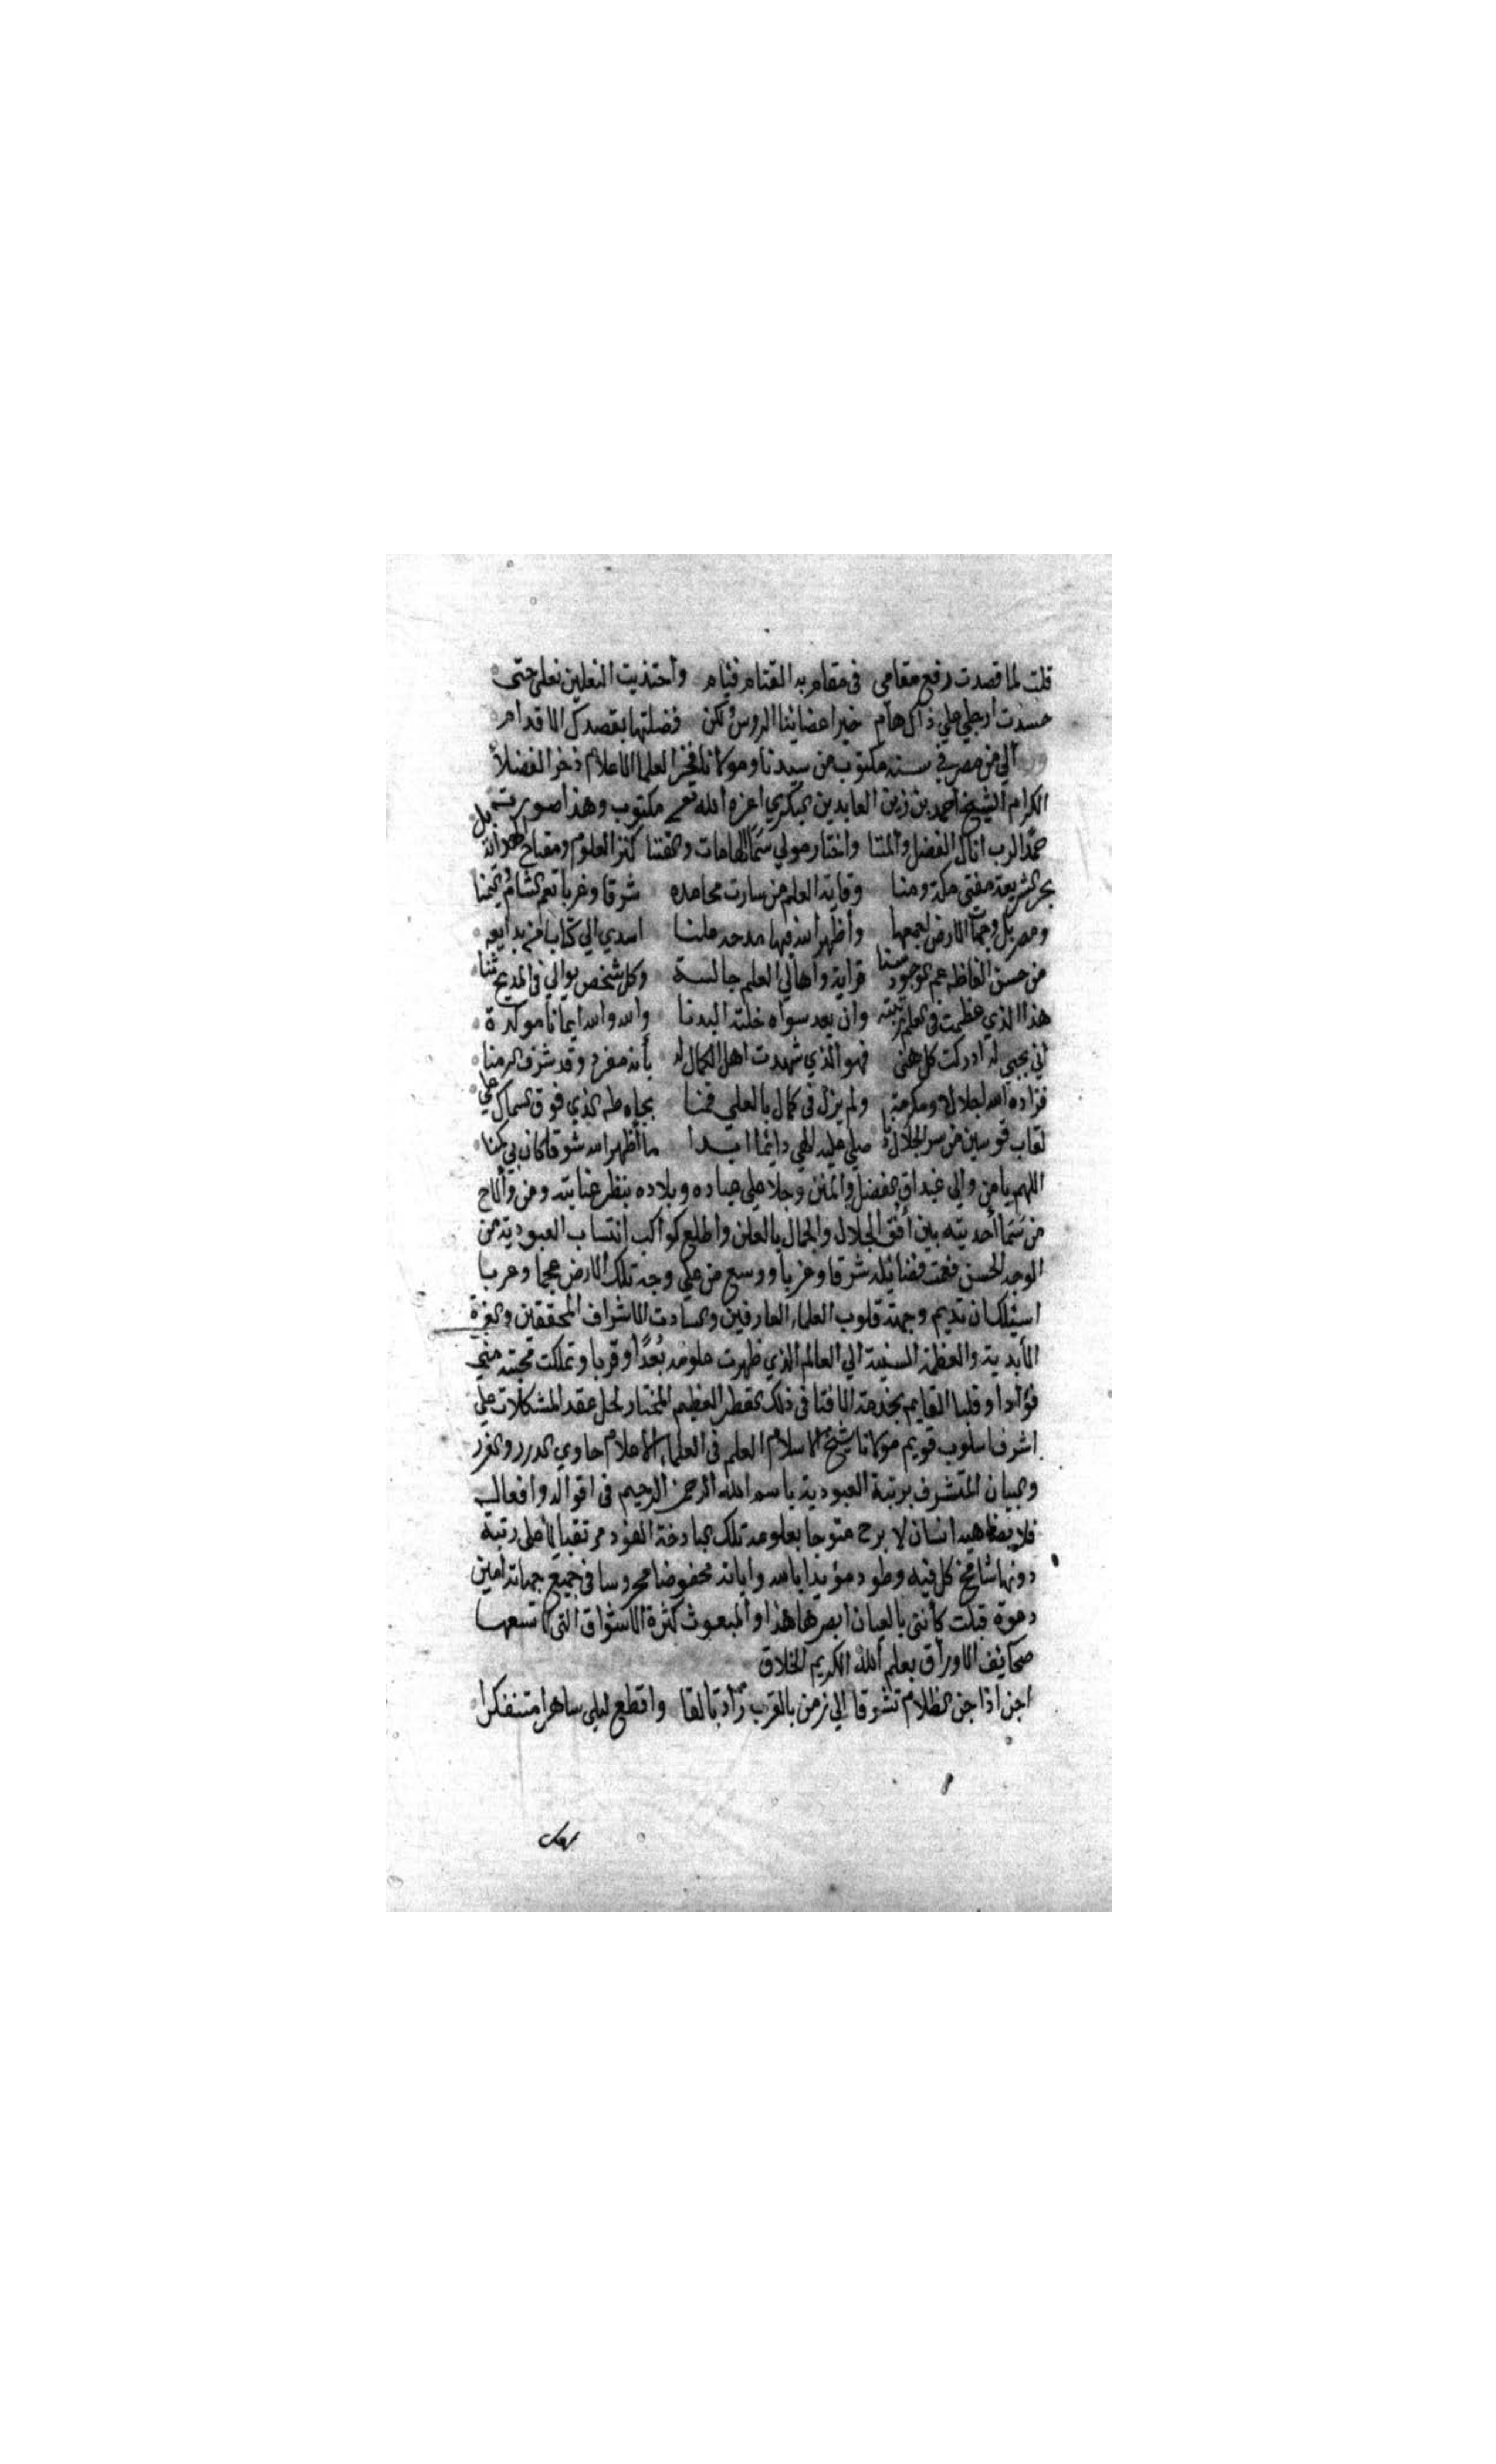 قلت لما قصدت رفع مقامي في مقام به القتام فئام واحتذيت النعلين نعلي حتى
حسدت ارجلي علي ذاك هام خير اعضائنا الروس ولكن فضلتها بقصدك الاقدام
الي من مصر في سنه مكتوب من سيدنا ومولانا فخر العلما الاعلام ذخر الفضلأ
الكرام الشيخ احمد بن زين العابدين البكري اعزه الله تعم مكتوب وهذا صورته
حمدا لرب انال الفضل والمننا واختار مولي سما الهامات كنز العلوم ومفتاح
بحر الشريعة مفتي مكة ومنا وقاية العلم من سارت محامده شرقا وغربا تعم الشام واليمنا
ومصر بل وجهات الارض اجمعها وأظهر الله فيها مدحه علنا اسدي الي كتابا من بدايعه
من حسن الفاظه عم الوجود سنا قراية واهالي العلم جالسة وكل شخص يوالي في المديح ثنا
هذا الذي عظمت في العلم رتبته وان يعد سواه خلته البدنا والله والله ايمانا موكدة
اني بحبي له ادركت كل هني فهو الذي شهدت اهل الكمال له بأنه مفرد وقد شرف الزمنا
فزاده الله اجلالا ومكرمة ولم يزل في كمال بالعلي قمنا بجاه طه الذي فوق السماك علي
لقاب قوسين من سر الجلال دنا صلي عليه الهي دائما ابدا ما أظهر الله شوقا كان بي كمنا
اللهم يا من والي غيداق الفضل والمنن وجلا علي عباده وبلاده بنظر عنايته ومن والاح
من سما أحديته بين أفق الجلال والجمال بالعلن واطلع كواكب انتساب العبودية من
الوجه الحسن فعمت فضائله شرقا وغربا ووسع من علي وجه تلك الارض عجما وعربا
اسئلك ان تديم وجهة قلوب العلماء العارفين والسادت الاشراف المحققين والعزة
الأبدية والعظمة السنية الي العالم الذي ظهرت علومه بعدا وقربا وتملكت محبته مني
فؤادا وقلبا القايم بخدمة الافتا في ذلك القطر العظيم المختار لحل عقد المشكلات علي
اشرف اسلوب قويم مولانا شيخ الاسلام العلم في العلماء الأعلام حاوي الدرر والغرر
والبيان المتشرف برتبة العبودية باسم الله الرحمن الرحيم في اقواله وافعاله
فلا يضاهيه انسان لا برح متوجا بعلومه تلك الباذخة العود مرتقيا لاعلى رتبة
دونها شامخ كل فيه وطود مؤيدا بالله واياته محفوضا محروسا في جميع جهاته امين
دعوة قبلت كأنني بالعيان ابصرها هذا والمبعوث كثرة الاشواق التي لا تسعها
صحائف الاوراق بعلم الله الكريم الخلاق
اجن اذا جن الظلام تشوقا الي زمن بالقرب واقطع ليلي ساهرا متفكرا